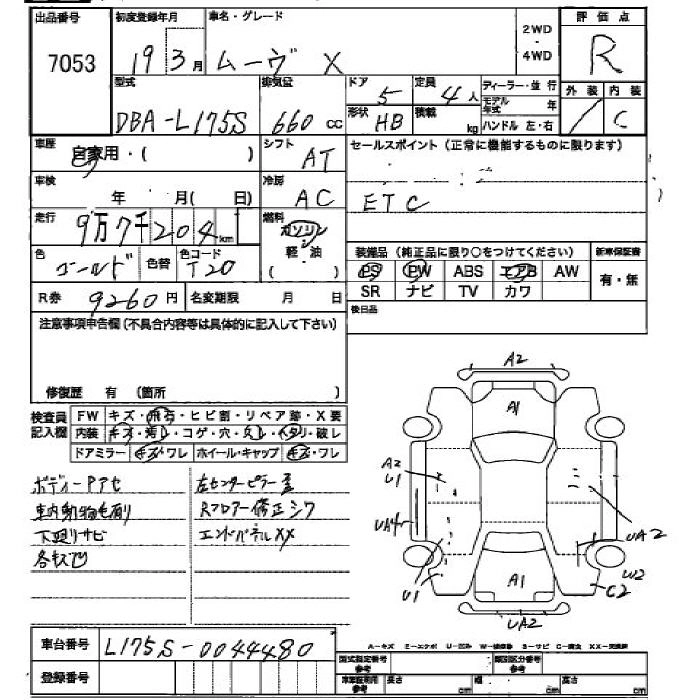 出品番号 7053
初度登録年月 19 3月
車名・グレード ムーヴ X
2WD・4WD
評価点 R
型式 DBA-L175S
排気量 660 cc
ドア 5
形状 HB
定員 4人
積載 kg
ディーラー・並行
モデル年式 年
ハンドル 左・右
外装 /
内装 C
車歴 自家用・( )
シフト AT
セールスポイント(正常に機能するものに限ります)
ETC
車検 年 月( 日)
冷房 AC
走行 9万7千204km
燃料 ガソリン 軽・油 ( )
色 ゴールド 色替
色コード T20
装備品(純正品に限り○をつけてください)
PS PW ABS エアB AW
SR ナビ TV カワ
新車保証書 有・無
R券 9260円
名変期限 月 日
後日品
注意事項申告欄(不具合内容等は具体的に記入して下さい)
修復歴 有(箇所 )
検査員記入欄
FW キズ・飛石・ヒビ割・リペア跡・X要
内装 キズ・汚レ・コゲ・穴・欠レ・ヘタリ・破レ
ドアミラー キズ・ワレ ホイール・キャップ キズ・ワレ
ボディーPアセ
車内動物毛有り
下廻りサビ
各キズ凹
左センターピラー歪
Rフロアー修正シワ
エンドパネルXX
A2
A1
A2
U1
UA4
U1
A1
UA2
UA2
W2
C2
車台番号 L175S-0044480
登録番号
A-キズ E-エクボ U-凹み S-サビ C-腐食
型式指定番号
類別区分番号
長さ cm 幅 cm 高さ cm